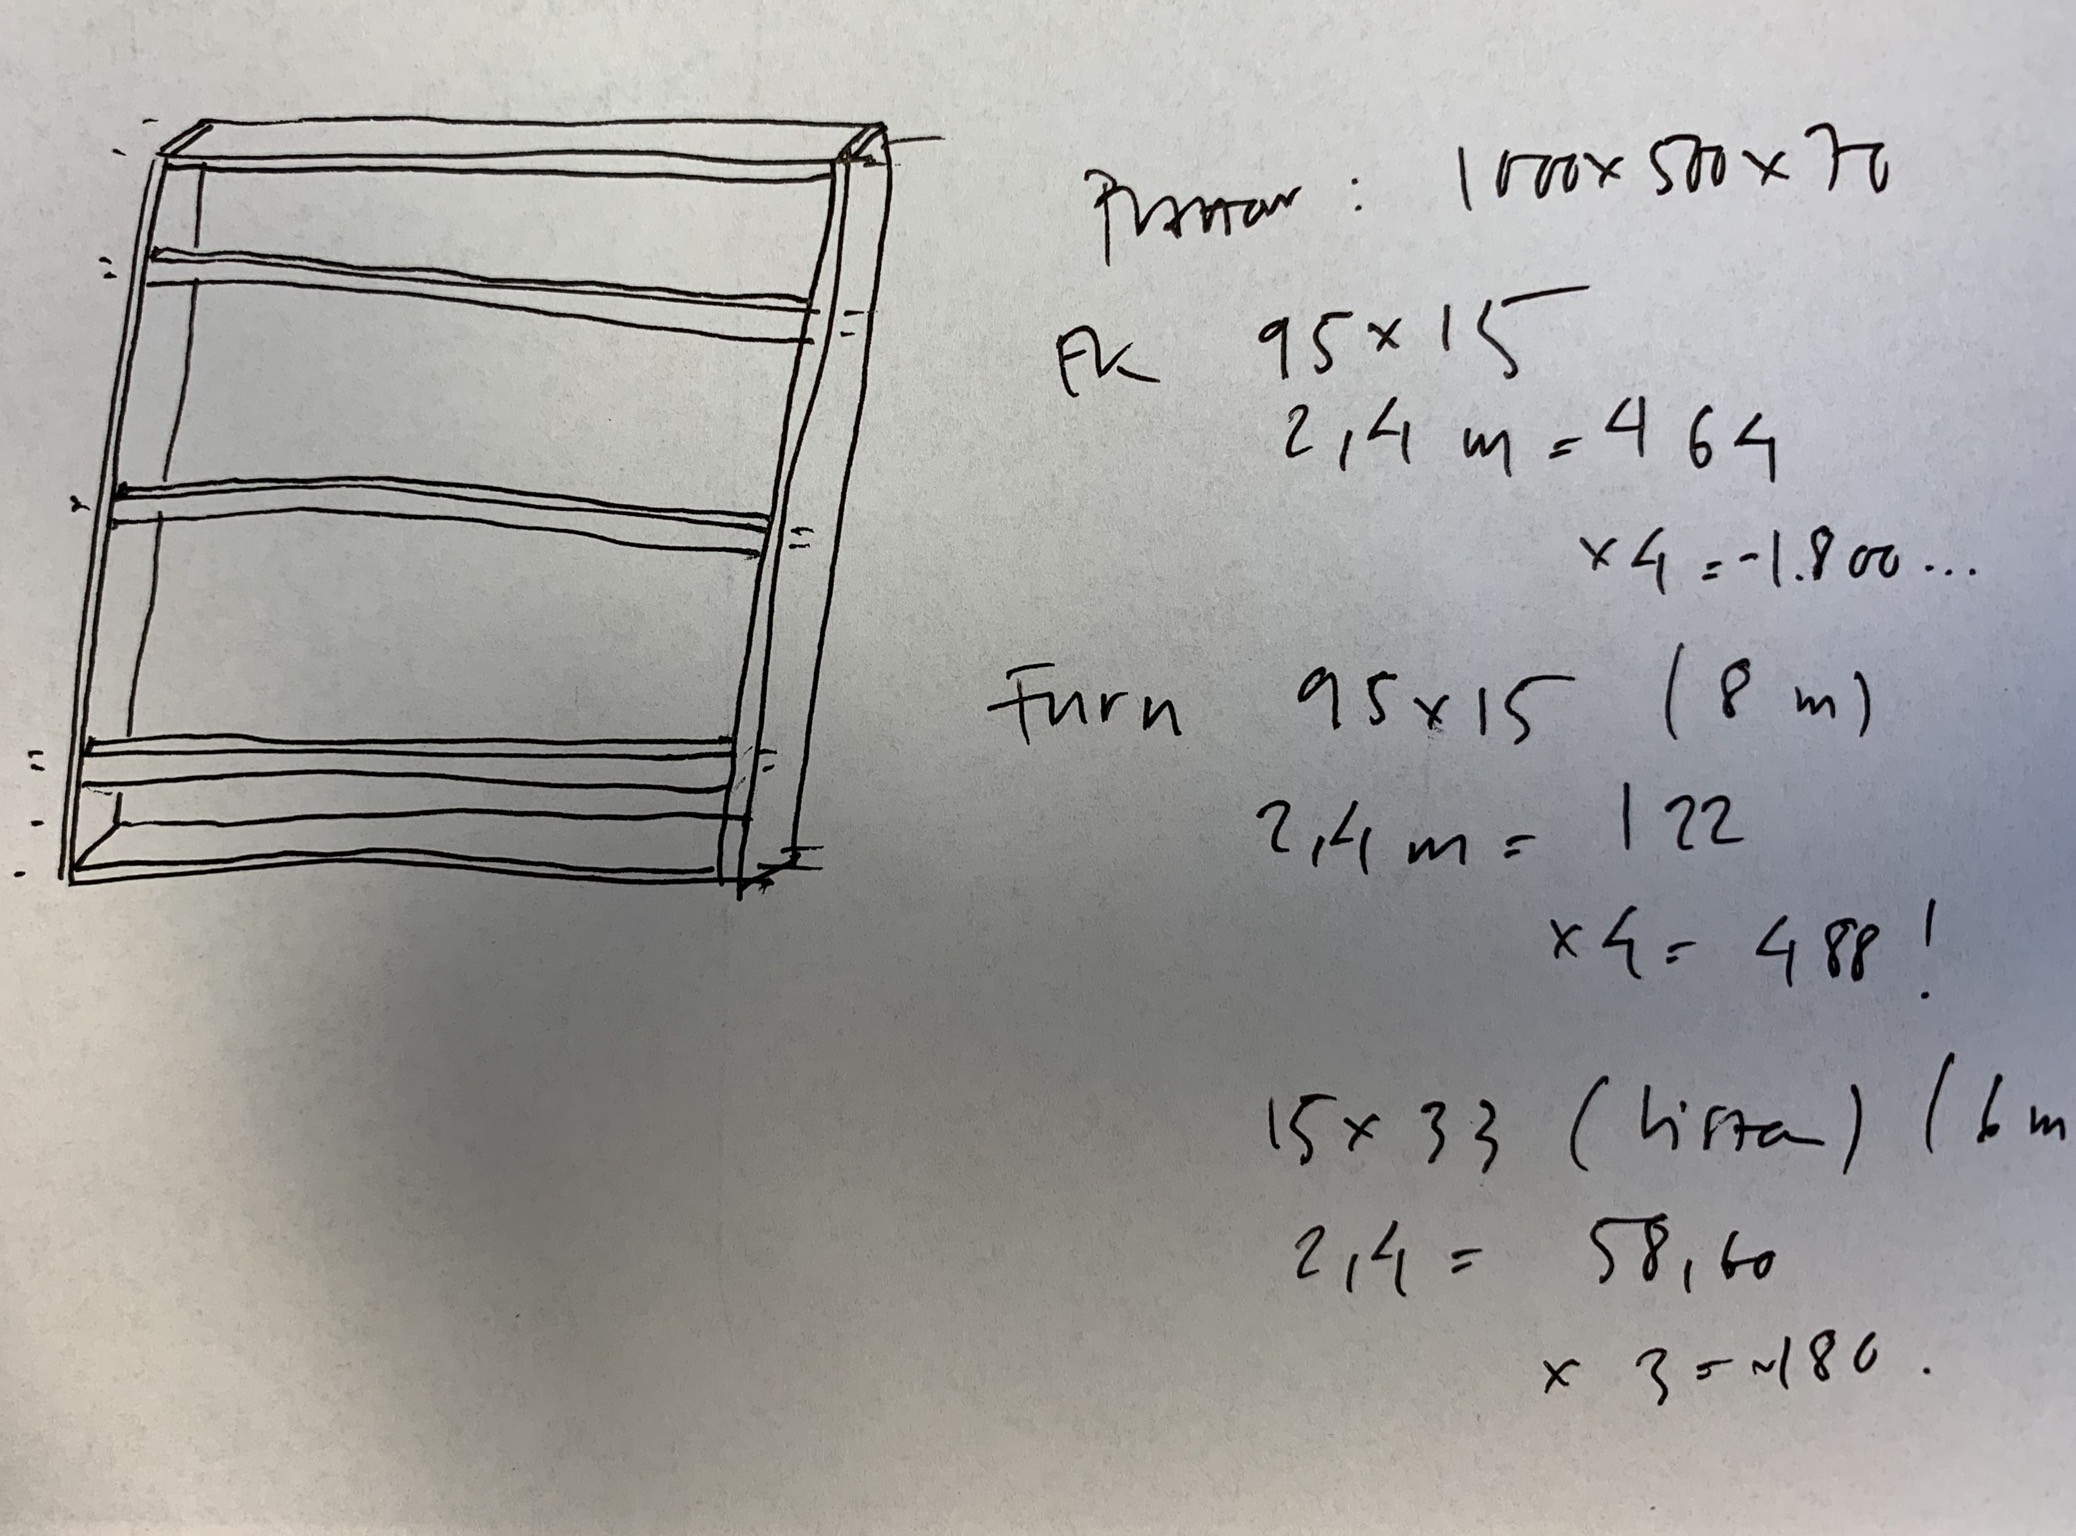 : 1000x500x70
Ek 95x15
2,4 m = 464
x4 = ~1.800...
Furn 95x15 (8 m)
2,4 m = 122
x4 = 488!
15x33 (listen) (6 m
2,4 = 58,60
x 3 = ~180.